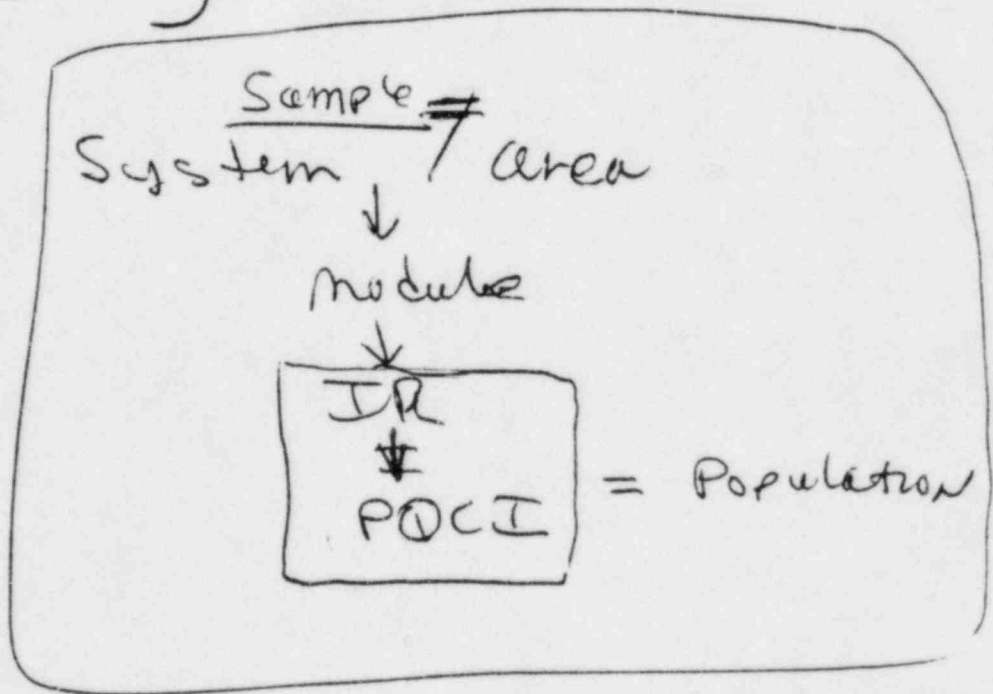 Sample
System / area
↓
module
↓
IR
↓
PQCI = Population